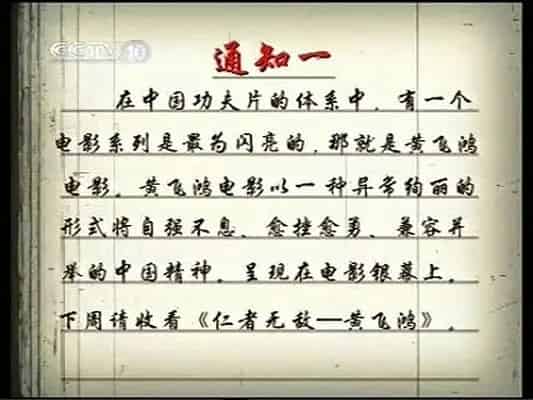 CCTV 10
通知一
在中国功夫片的体系中，有一个
电影系列是最为闪亮的，那就是黄飞鸿
电影。黄飞鸿电影以一种异常绚丽的
形式将自强不息、愈挫愈勇、兼容并
举的中国精神。呈现在电影银幕上。
下周请收看《仁者无敌—黄飞鸿》。